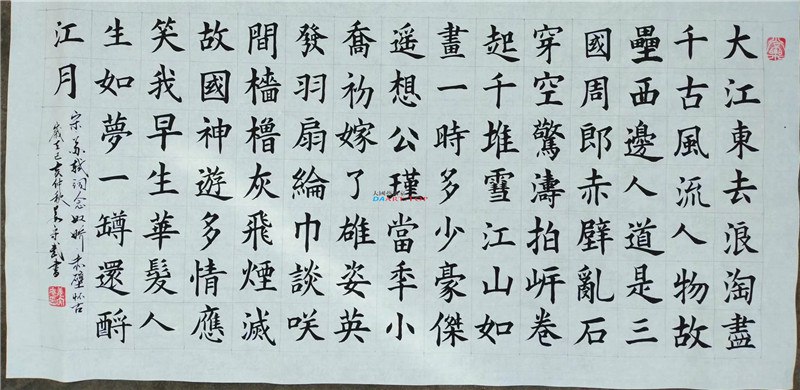 大江東去浪淘盡
千古風流人物故
壘西邊人道是三
國周郎赤壁亂石
穿空驚濤拍岍卷
起千堆雪江山如
畫一時多少豪傑
遥想公瑾當秊小
喬初嫁了雄姿英
發羽扇綸巾談咲
間檣櫓灰飛煙滅
故國神遊多情應
笑我早生華髮人
生如夢一罇還酹
江月
宋苏軾词念奴娇赤壁怀古
己亥仲秋書